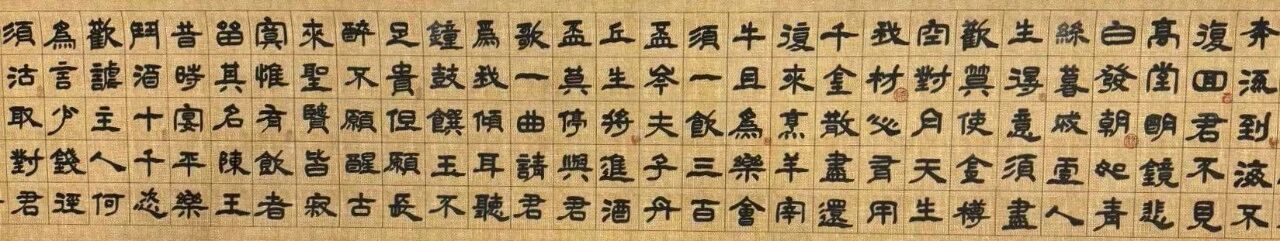 奔流到海不
復回君不見
高堂明鏡悲
白發朝如青
絲暮成雪人
生得意須盡
歡莫使金樽
空對月天生
我材必有用
千金散盡還
復來烹羊宰
牛且為樂會
須一飲三百
盃岑夫子丹
丘生將進酒
盃莫停與君
歌一曲請君
爲我傾耳聽
鐘鼓饌玉不
足貴但願長
醉不願醒古
來聖賢皆寂
寞惟有飲者
留其名陳王
昔時宴平樂
鬥酒十千恣
歡謔主人何
為言少錢徑
須沽取對君